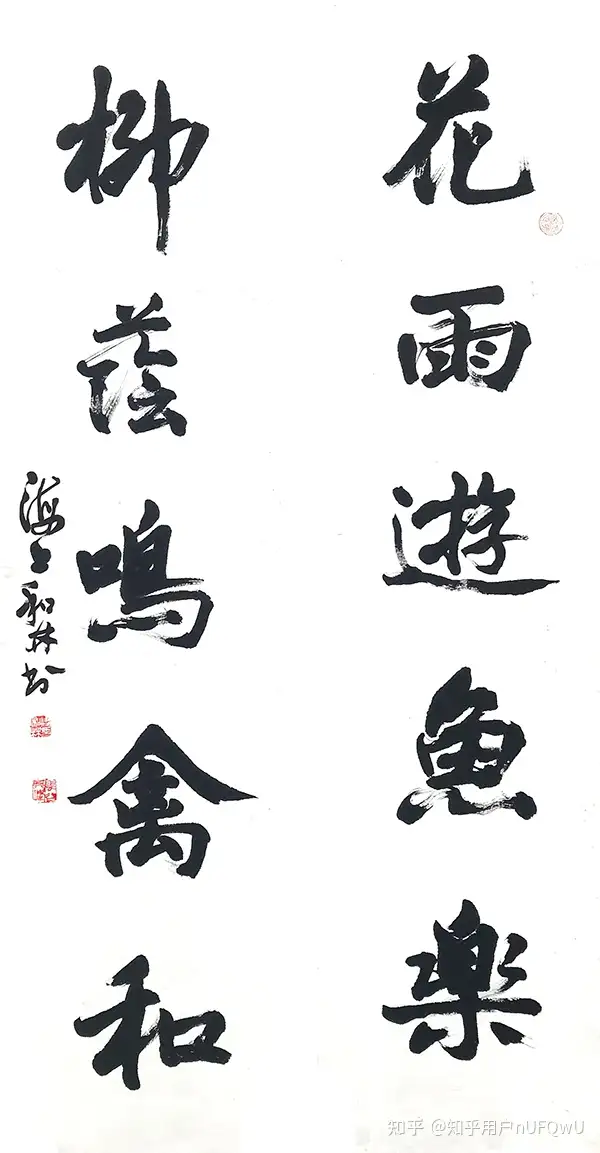 花雨遊魚樂
柳蔭鳴禽和
海上和林书
知乎 @知乎用户nUFQwU